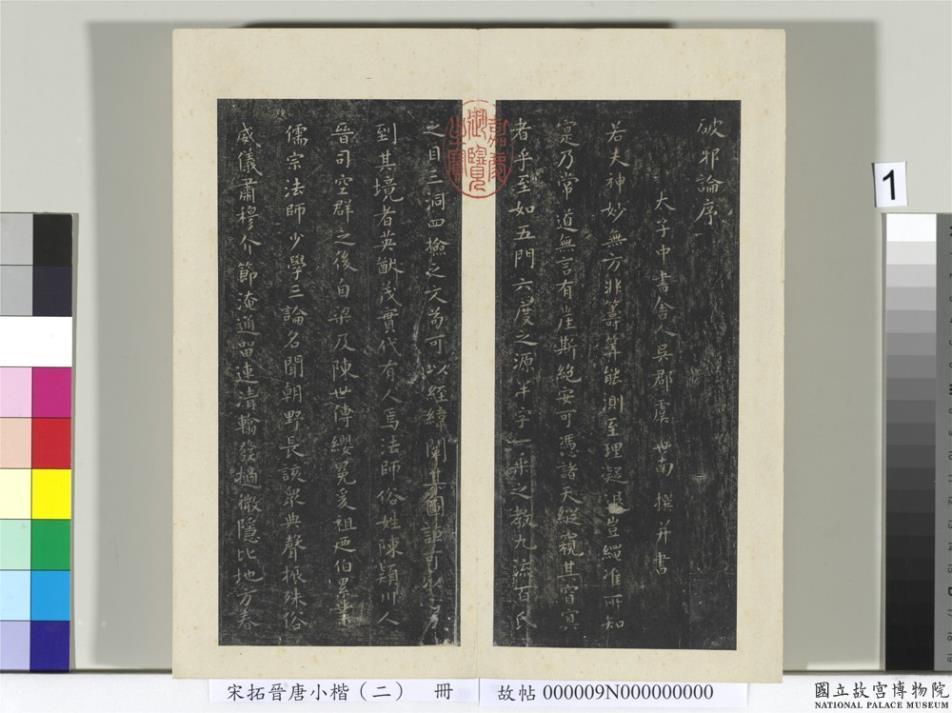 破邪論序
太子中書舍人吳郡虞世南撰并書
若夫神妙無方非籌筭能測至理凝邈豈繩准所知
寔乃常道無言有崖斯絕安可憑諸天縱窺其窅冥
者乎至如五門六度之源半字一乘之教九流百氏
之目三洞四檢之文苟可以經緯闡其圖詎可以
到其境者英猷茂實代有人焉法師俗姓陳潁川人
晉司空群之後自梁及陳世傳纓冕爰祖迺伯累業
儒宗法師少學三論名聞朝野長該眾典聲振殊俗
威儀肅穆介節淹通留連清翰發擿微隱比地方春
嘉慶御覽之寶
1
宋拓晉唐小楷（二） 冊
故帖 000009N000000000
國立故宮博物院
NATIONAL PALACE MUSEUM